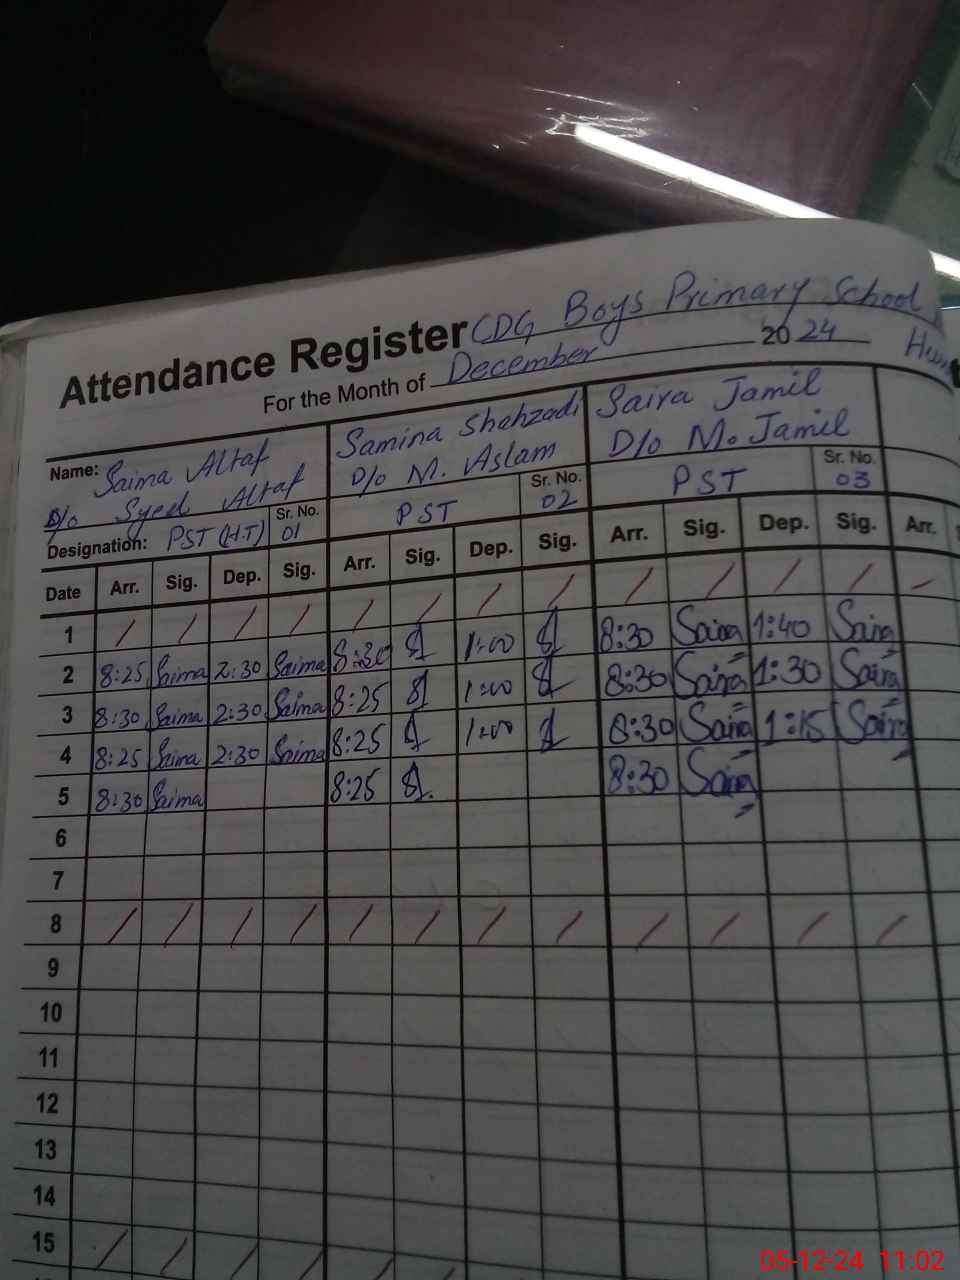 Attendance Register CDG Boys Primary School
For the Month of December 2024
Name: Saima Altaf Samina Shahzadi Saira Jamil
D/o Syed Altaf D/o M. Aslam D/o M. Jamil
Designation: PST (H.T) Sr. No. 01 PST Sr. No. 02 PST Sr. No. 03
Date Arr. Sig. Dep. Sig. Arr. Sig. Dep. Sig. Arr. Sig. Dep. Sig. Arr.
1 / / / / / / / / / / / /
2 8:25 Saima 2:30 Saima 8:30 1:00 8:30 Saira 1:40 Saira
3 8:30 Saima 2:30 Saima 8:25 1:00 8:30 Saira 1:30 Saira
4 8:25 Saima 2:30 Saima 8:25 1:00 8:30 Saira 1:15 Saira
5 8:30 Saima 8:25 8:30 Saira
6
7
8 / / / / / / / / / / / /
9
10
11
12
13
14
15 / / /
05-12-24 11:02